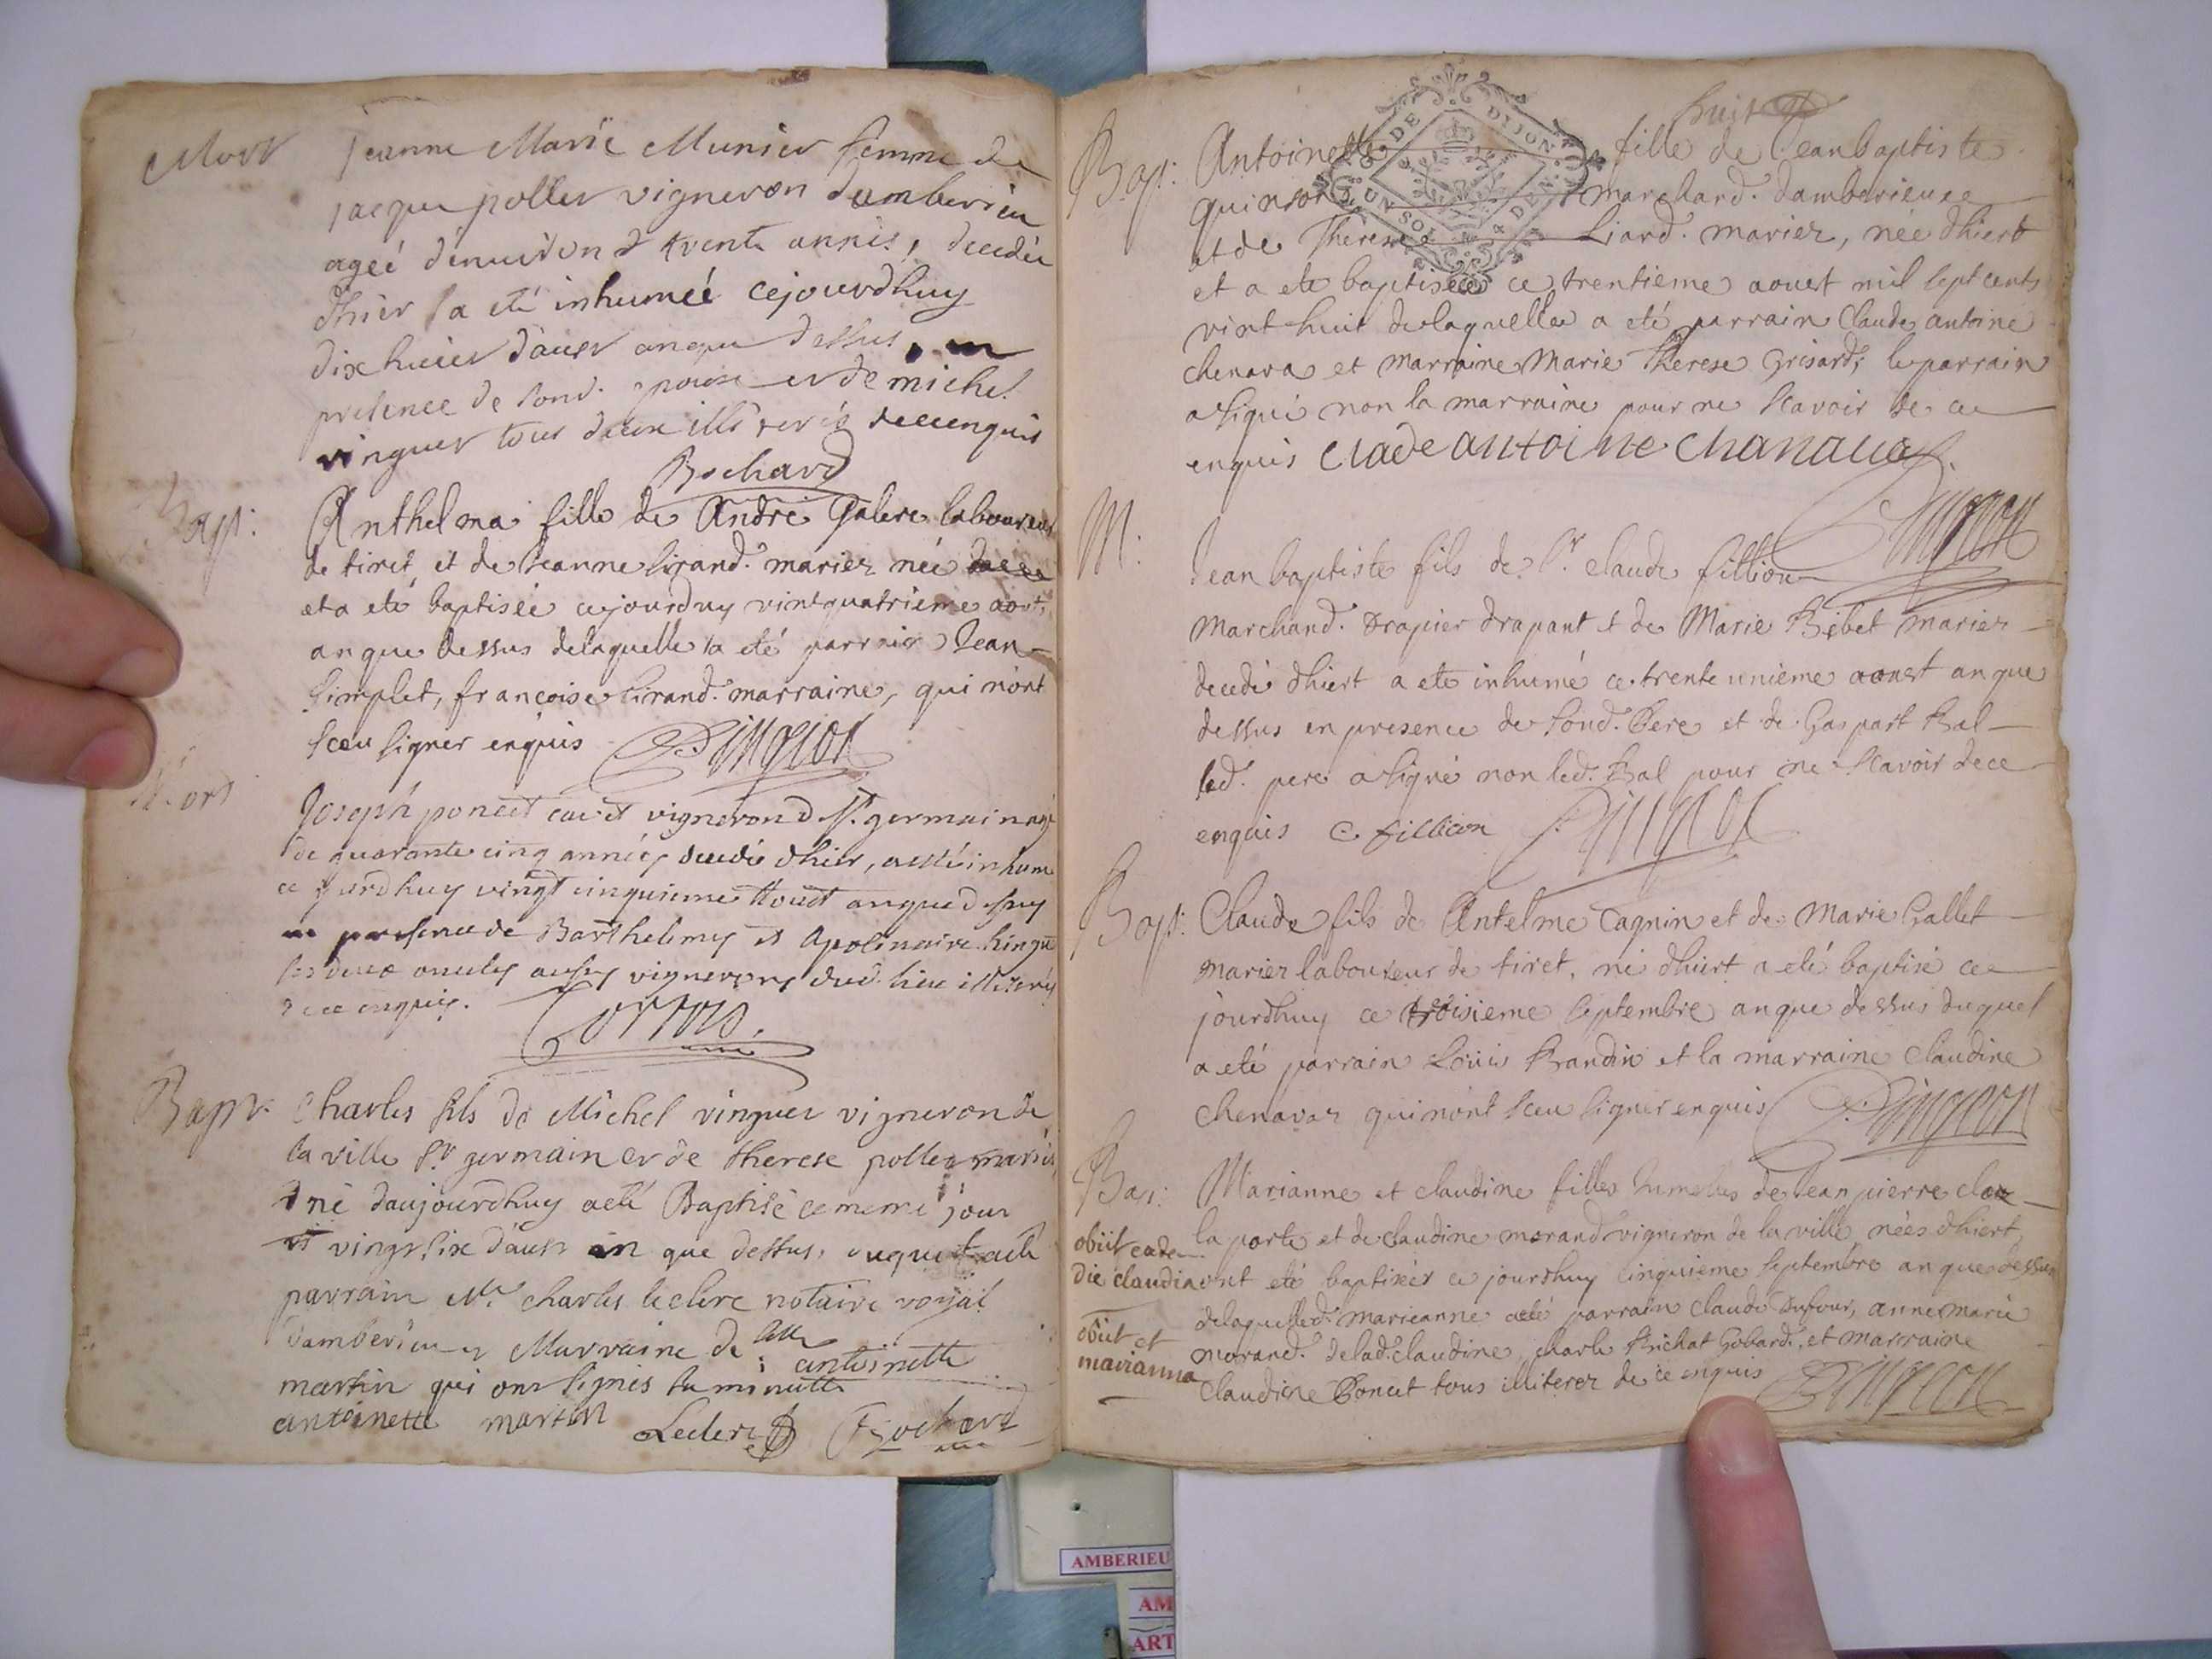 Mort
Jeanne Marie Munier femme de
jacque pollet vigneron damberieu
ageé denuiron trente annés, decedée
dhier a eté inhumeé cejourdhuy
dixhuict daust anque dessus, en
presence de sond. epoux et de michel
vinguet tous deux illiterés de ce enquis
Bochard
Bap:
Anthelma fille de André Galere laboureur
de tiret et de Jeanne Girand. mariez née
et a eté baptisée cejourduy vintquatrieme aout
anque dessus delaquelle a eté parrain Jean
Simplet, françoise Girand. marraine, qui nont
sceu signer enquis Dingeon
Mort
Joseph poncet vigneron d St. germain agé
de quarante cinq années decedé dhier, a esté inhumé
ce jourdhuy vingt cinquieme Aoust anque dessus
en presence de Barthelemy et Apolinaire
les deux aussy vignerons dud. lieu illiterés
de ce enquis.
Bapt.
Charles fils de Michel vinguet vigneron de
la ville St germain et de therese pollet mariés
né daujourdhuy a eté Baptisé ce meme jour
vingt six daust an que dessus, duquel a eté
parrain Me. charles leclerc notaire royal
damberieu et Marraine de lle antoinette
martin qui ont signés la minutte
antoinette martin Leclerc Bochard
huit
Bap:
Antoinette fille de Jean baptiste
quinson marchand. damberieux
et de Therese Liard. mariez, née dhiert
et a eté baptisée ce trentieme aoust mil sept cents
vint huit delaquelle a eté parrain Claude antoine
chenava et marraine Marie Therese Grisard, le parrain
a signé non la marraine pour ne scavoir de ce
enquis clade antoine chanaua
Dingeon
M:
Jean baptiste fils de Sr. claude fillion
marchand. drapier drapant et de Marie Bibet mariez
decedé dhiert a eté inhumé ce trente unieme aoust anque
dessus en presence de sond. Pere et de Gaspart Bal
led. pere a signé non led. Bal pour ne scavoir de ce
enquis C fillion Dingeon
Bap:
Claude fils de Antelme Cagnin et de Marie Gallet
mariez laboureur de tiret, né dhiert a eté baptisé ce
jourdhuy ce troisieme septembre anque dessus duquel
a eté parrain Louis Brandin et la marraine Claudine
chenavaz qui nont sceu signer enquis Dingeon
Bap:
Marianne et claudine filles jumelles de Jean pierre
la porte et de claudine morand vigneron de la ville nées dhiert
ont eté baptisées ce jourdhuy cinquieme septembre anque dessus
delaquelle marieanne a eté parrain Claude Dufour, anne marie
morand. delad. claudine charle Brichat Gobard. et marraine
claudine Poncet tous illiterez de ce enquis Dingeon
obiit eadem
die claudia
obiit et
marianna
AMBERIEU
AM
ART